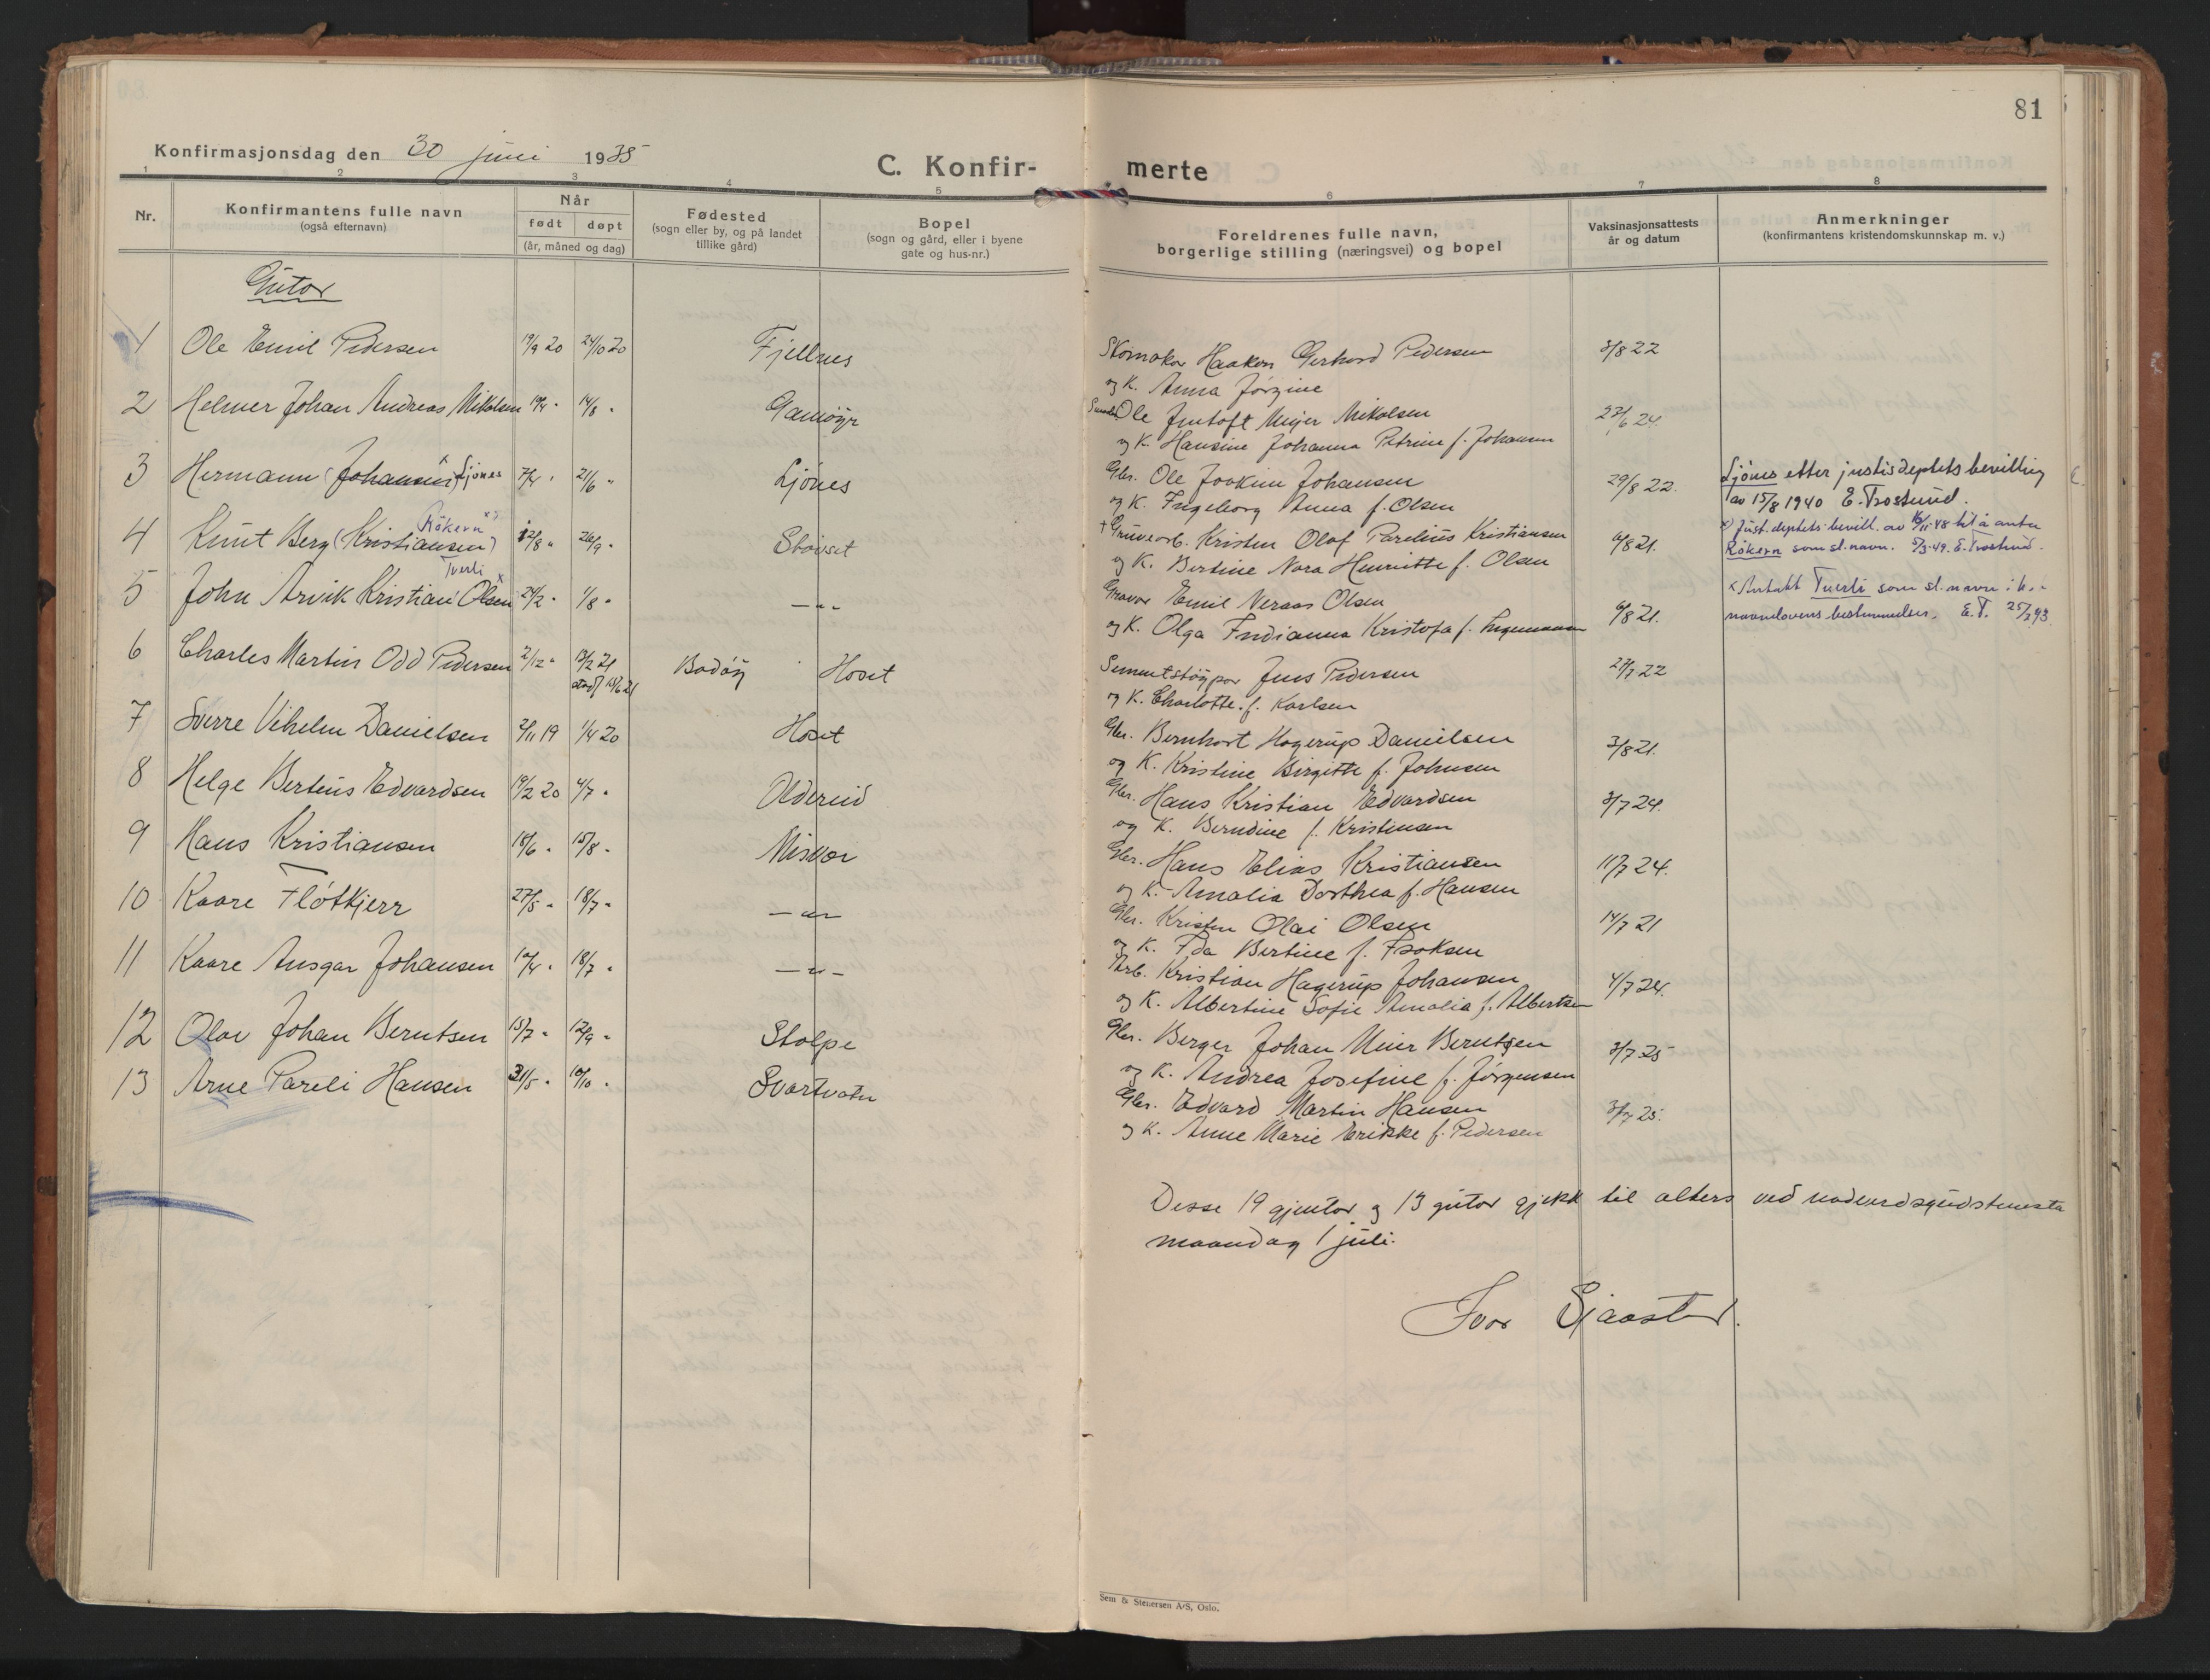 81
Konfirmasjonsdag den 30 juni 1935
C. Konfir- merte
1 2 3 4 5 6 7 8
Nr.
Konfirmantens fulle navn
(også efternavn)
Når
født døpt
(år, måned og dag)
Fødested
(sogn eller by, og på landet
tillike gård)
Bopel
(sogn og gård, eller i byene
gate og hus-nr.)
Foreldrenes fulle navn,
borgerlige stilling (næringsvei) og bopel
Vaksinasjonsattests
år og datum
Anmerkninger
(konfirmantens kristendomskunnskap m. v.)
Gutor
1 Ole Emil Pedersen 19/9 20 24/10 20 Fjellnes Skomakar Haakon Gerhard Pedersen 3/8 22
og K. Anna Jørgine
2 Helmer Johan Andreas Mikalsen 19/4 " 14/8 " Gamøyr Ole Jentoft Meyer Mikalsen 27/6 24.
og K. Hansine Johanna Petrine f. Johansen
3 Hermann (Johansen) x Ljønes 7/4 " 21/6 " Ljönes Gbr. Ole Joakim Johansen 29/8 22. Ljönes etter justisdeptets bevilling
og K. Ingeborg Anna f. Olsen av 15/8 1940 E. Trosterud.
4 Knut Berg (Kristiansen) Råkern x) 12/8 " 26/9 " Støvset + Gruvearb. Kristen Olaf Parelius Kristiansen 6/8 21. x) Just.deptets bevill. av 16/11-48 til å anta
og K. Bertine Nora Henriette f. Olsen Råkern som sl.navn. 5/3-49. E. Trosterud.
5 John Arvik Kristian Olsen x Tverli 24/2 " 1/8 " — " — Gravar Emil Neraas Olsen 6/8 21. x Antatt Tverli som sl.navn i h.
og K. Olga Indianna Kristofa f. Ingemann navnelovens bestemmelser. E.T. 25/3 43.
6 Charles Martin Odd Pedersen 2/12 " 13/2 21 Bodöy Hoset Sementstøypar Jens Pedersen 27/7 22
stadf 15/6 21
og K. Charlotte f. Karlsen
7 Sverre Vihelm Danielsen 2/11 19 1/4 20 Hoset Gbr. Bernhart Hagerup Danielsen 3/8 21.
og K. Kristine Birgitte f. Johnsen
8 Helge Berteus Edvardsen 19/2 20 4/7 " Oldereid Gbr. Hans Kristian Edvardsen 3/7 24.
og K. Berndine f. Kristensen
9 Hans Kristiansen 18/6 " 15/8 " Misvær Gbr. Hans Elias Kristiansen 11/7 24.
og K. Amalia Dorthea f. Hansen
10 Kaare Fløtkjerr 27/5 " 18/7 " — " — Gbr. Kristen Olai Olsen 14/7 21
og K. Ida Bertine f. Isaksen
11 Kaare Ansgar Johansen 10/4 " 18/7 " — " — Arb. Kristian Hagerup Johansen 4/7 24.
og K. Albertine Sofie Amalia f. Albertsen
12 Olav Johan Berntsen 15/7 " 12/9 " Stolpe Gbr. Berger Johan Meier Berntsen 3/7 25
og K. Andrea Josefine f. Jørgensen
13 Arne Pareli Hansen 31/5 " 10/10 " Svartvatn Gbr. Edvard Martin Hansen 3/7 25.
og K. Anne Marie Erikke f. Pedersen
Desse 19 gjentor og 13 gutor gjekk til alters ved nadverdsgudstenesta
maandag 1 juli.
Ivar Sjaastad.
Sem & Stenersen A/S, Oslo.